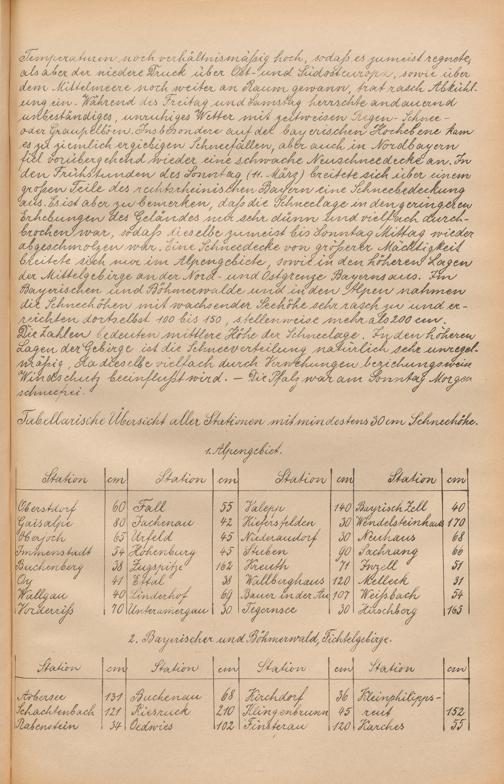 Temperaturen noch verhältnismäßig hoch, sodaß es zumeist regnete,
als aber der niedere Druck über Ost- und Südosteuropa, sowie über
dem Mittelmeere noch weiter an Raum gewann, trat rasch Abkühl-
ung ein. Während des Freitag und Samstag herrschte andauernd
unbeständiges, unruhiges Wetter mit zeitweisen Regen- Schnee-
oder Graupelböen. Insbesondere auf der bayerischen Hochebene kam
es zu ziemlich ergiebigen Schneefällen, aber auch in Nordbayern
fiel vorübergehend wieder eine schwache Neuschneedecke an. In
den Frühstunden des Sonntag (11. März) breitete sich über einem
großen Teile des rechtsrheinischen Bayern eine Schneebedeckung
aus. Es ist aber zu bemerken, daß die Schneelage in den geringeren
Erhebungen des Geländes nur sehr dünn und vielfach durch-
brochen war, sodaß dieselbe zumeist bis Sonntag Mittag wieder
abgeschmolzen war. Eine Schneedecke von größerer Mächtigkeit
breitete sich nur im Alpengebiete, sowie in den höheren Lagen
der Mittelgebirge an der Nord- und Ostgrenze Bayerns aus. Im
Bayerischen und Böhmerwalde und in den Alpen nahmen
die Schneehöhen mit wachsender Seehöhe sehr rasch zu und er-
reichten dortselbst 100 bis 150, stellenweise mehr als 200 cm.
Die Zahlen bedeuten mittlere Höhe der Schneelage. In den höheren
Lagen der Gebirge ist die Schneeverteilung natürlich sehr unregel-
mäßig, da dieselbe vielfach durch Verwehungen beziehungsweise
Windschutz beeinflußt wird. – Die Pfalz war am Sonntag Morgen
schneefrei.
Tabellarische Übersicht aller Stationen mit mindestens 30 cm Schneehöhe.
1. Alpengebiet.
Station cm Station cm Station cm Station cm
Oberstdorf 60 Fall 55 Valepp 140 Bayrisch Zell 40
Gaisalpe 80 Jachenau 42 Kiefersfelden 30 Wendelsteinhaus 170
Oberjoch 65 Urfeld 45 Niederaudorf 30 Neuhaus 68
Immenstadt 34 Hohenburg 45 Stuben 90 Sachrang 66
Buchenberg 38 Zugspitze 162 Kreuth 71 Inzell 51
Oy 41 Ettal 38 Wallberghaus 120 Melleck 31
Wallgau 40 Linderhof 69 Bauer in der Au 107 Weißbach 54
Vorderriß 70 Unteramergau 30 Tegernsee 30 Hirschberg 163
2. Bayrischer und Böhmerwald, Fichtelgebirge.
Station cm Station cm Station cm Station cm
Arbersee 131 Buchenau 68 Kirchdorf 36 Kleinphilipps-
Schachtenbach 121 Kiesruck 210 Klingenbrunn 45 reut 152
Rabenstein 34 Oedwies 102 Finsterau 120 Karches 55